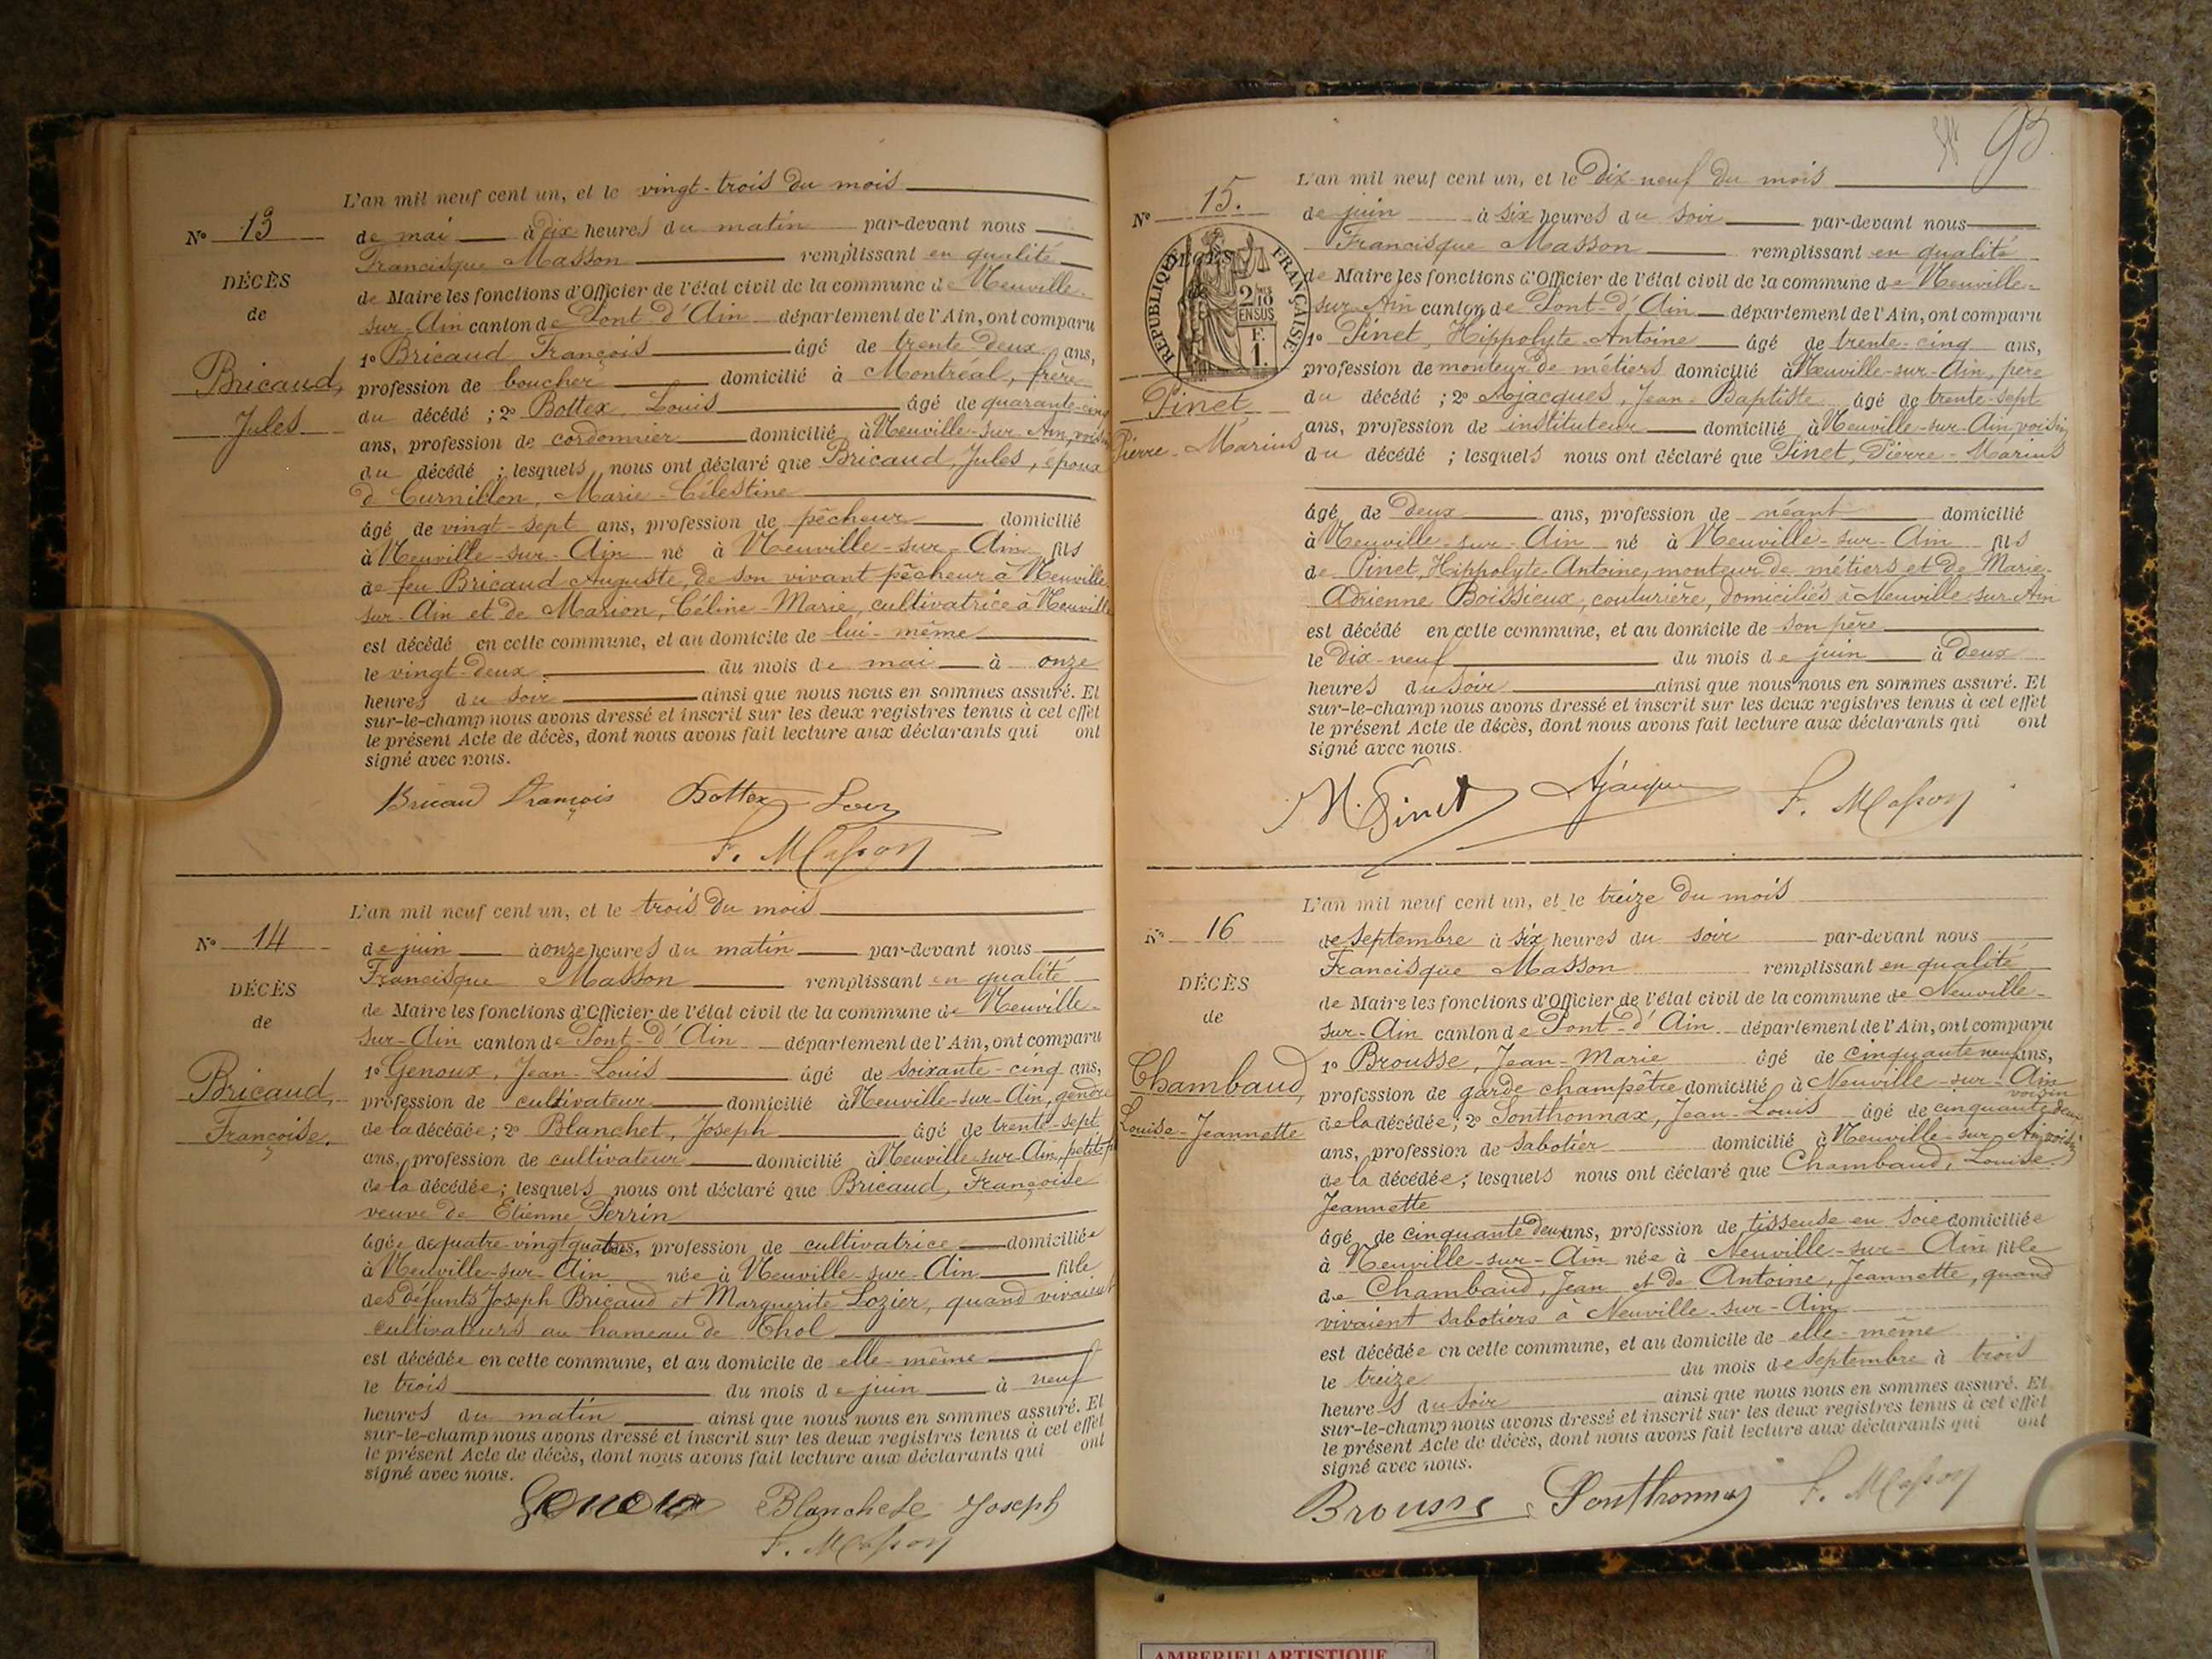 L'an mil neuf cent un, et le vingt-trois du mois
N° 13
de mai à dix heures du matin par-devant nous
Francisque Masson remplissant en qualité
DÉCÈS
de Maire les fonctions d'Officier de l'état civil de la commune de Neuville-
de
sur-Ain canton de Pont-d'Ain département de l'Ain, ont comparu
1° Bricaud, François âgé de trente deux ans,
Bricaud,
profession de boucher domicilié à Montréal, frère
Jules
du décédé ; 2° Bottex, Louis âgé de quarante-cinq
ans, profession de cordonnier domicilié à Neuville-sur-Ain, voisin
du décédé ; lesquels nous ont déclaré que Bricaud, Jules, époux
d Curnillon, Marie-Célestine
âgé de vingt-sept ans, profession de pêcheur domicilié
à Neuville-sur-Ain né à Neuville-sur-Ain fils
de feu Bricaud Auguste, de son vivant pêcheur à Neuville-
sur-Ain et de Marion, Céline-Marie, cultivatrice à Neuville
est décédé en cette commune, et au domicile de lui-même
le vingt-deux du mois de mai à onze
heures du soir ainsi que nous nous en sommes assuré. Et
sur-le-champ nous avons dressé et inscrit sur les deux registres tenus à cet effet
le présent Acte de décès, dont nous avons fait lecture aux déclarants qui ont
signé avec nous.
Bricaud François Bottex Louis
F. Masson
L'an mil neuf cent un, et le trois du mois
N° 14
de juin à onze heures du matin par-devant nous
Francisque Masson remplissant en qualité
DÉCÈS
de Maire les fonctions d'Officier de l'état civil de la commune de Neuville-
de
sur-Ain canton de Pont-d'Ain département de l'Ain, ont comparu
1° Genoux, Jean-Louis âgé de soixante-cinq ans,
Bricaud,
profession de cultivateur domicilié à Neuville-sur-Ain, gendre
Françoise.
de la décédée ; 2° Blanchet, Joseph âgé de trente-sept
ans, profession de cultivateur domicilié à Neuville-sur-Ain, petit-
de la décédée ; lesquels nous ont déclaré que Bricaud, Françoise
veuve de Etienne Perrin
âgée de quatre-vingt quatre ans, profession de cultivatrice domiciliée
à Neuville-sur-Ain née à Neuville-sur-Ain fille
des défunts Joseph Bricaud et Marguerite Lozier, quand vivaient
cultivateurs au hameau de Thol
est décédée en cette commune, et au domicile de elle-même
le trois du mois de juin à neuf
heures du matin ainsi que nous nous en sommes assuré. Et
sur-le-champ nous avons dressé et inscrit sur les deux registres tenus à cet effet
le présent Acte de décès, dont nous avons fait lecture aux déclarants qui ont
signé avec nous.
Genoux Blanchet Joseph
F. Masson
93
L'an mil neuf cent un, et le dix-neuf du mois
N° 15.
de juin à six heures du soir par-devant nous
Francisque Masson remplissant en qualité
RÉPUBLIQUE FRANÇAISE
2/10 EN SUS
F. 1.
de Maire les fonctions d'Officier de l'état civil de la commune de Neuville-
sur-Ain canton de Pont-d'Ain département de l'Ain, ont comparu
1° Pinet, Hippolyte-Antoine âgé de trente-cinq ans,
profession de monteur de métiers domicilié à Neuville-sur-Ain, père
Pinet,
du décédé ; 2° Ajacques, Jean-Baptiste âgé de trente-sept
Pierre-Marius
ans, profession de instituteur domicilié à Neuville-sur-Ain voisin
du décédé ; lesquels nous ont déclaré que Pinet, Pierre-Marius
âgé de deux ans, profession de néant domicilié
à Neuville-sur-Ain né à Neuville-sur-Ain fils
de Pinet, Hippolyte-Antoine, monteur de métiers et de Marie-
Adrienne Boissieux, couturière, domiciliés à Neuville-sur-Ain
est décédé en cette commune, et au domicile de son père
le dix-neuf du mois de juin à deux
heures du soir ainsi que nous nous en sommes assuré. Et
sur-le-champ nous avons dressé et inscrit sur les deux registres tenus à cet effet
le présent Acte de décès, dont nous avons fait lecture aux déclarants qui ont
signé avec nous.
H. Pinet Ajacques F. Masson
L'an mil neuf cent un, et le treize du mois
N° 16
de septembre à six heures du soir par-devant nous
Francisque Masson remplissant en qualité
DÉCÈS
de Maire les fonctions d'Officier de l'état civil de la commune de Neuville-
de
sur-Ain canton de Pont-d'Ain département de l'Ain, ont comparu
1° Brousse, Jean-Marie âgé de cinquante neuf ans,
Chambaud,
profession de garde champêtre domicilié à Neuville-sur-Ain
voisin
Louise-Jeannette
de la décédée ; 2° Sonthonnax, Jean-Louis âgé de cinquante deux
ans, profession de sabotier domicilié à Neuville-sur-Ain voisin
de la décédée ; lesquels nous ont déclaré que Chambaud, Louise-
Jeannette
âgé de cinquante deux ans, profession de tisseuse en soie domiciliée
à Neuville-sur-Ain née à Neuville-sur-Ain fille
de Chambaud, Jean et de Antoine, Jeannette, quand
vivaient sabotiers à Neuville-sur-Ain
est décédée en cette commune, et au domicile de elle-même
le treize du mois de septembre à trois
heures du soir ainsi que nous nous en sommes assuré. Et
sur-le-champ nous avons dressé et inscrit sur les deux registres tenus à cet effet
le présent Acte de décès, dont nous avons fait lecture aux déclarants qui ont
signé avec nous.
Brousse Sonthonnax F. Masson
AMBERIEU ARTISTIQUE